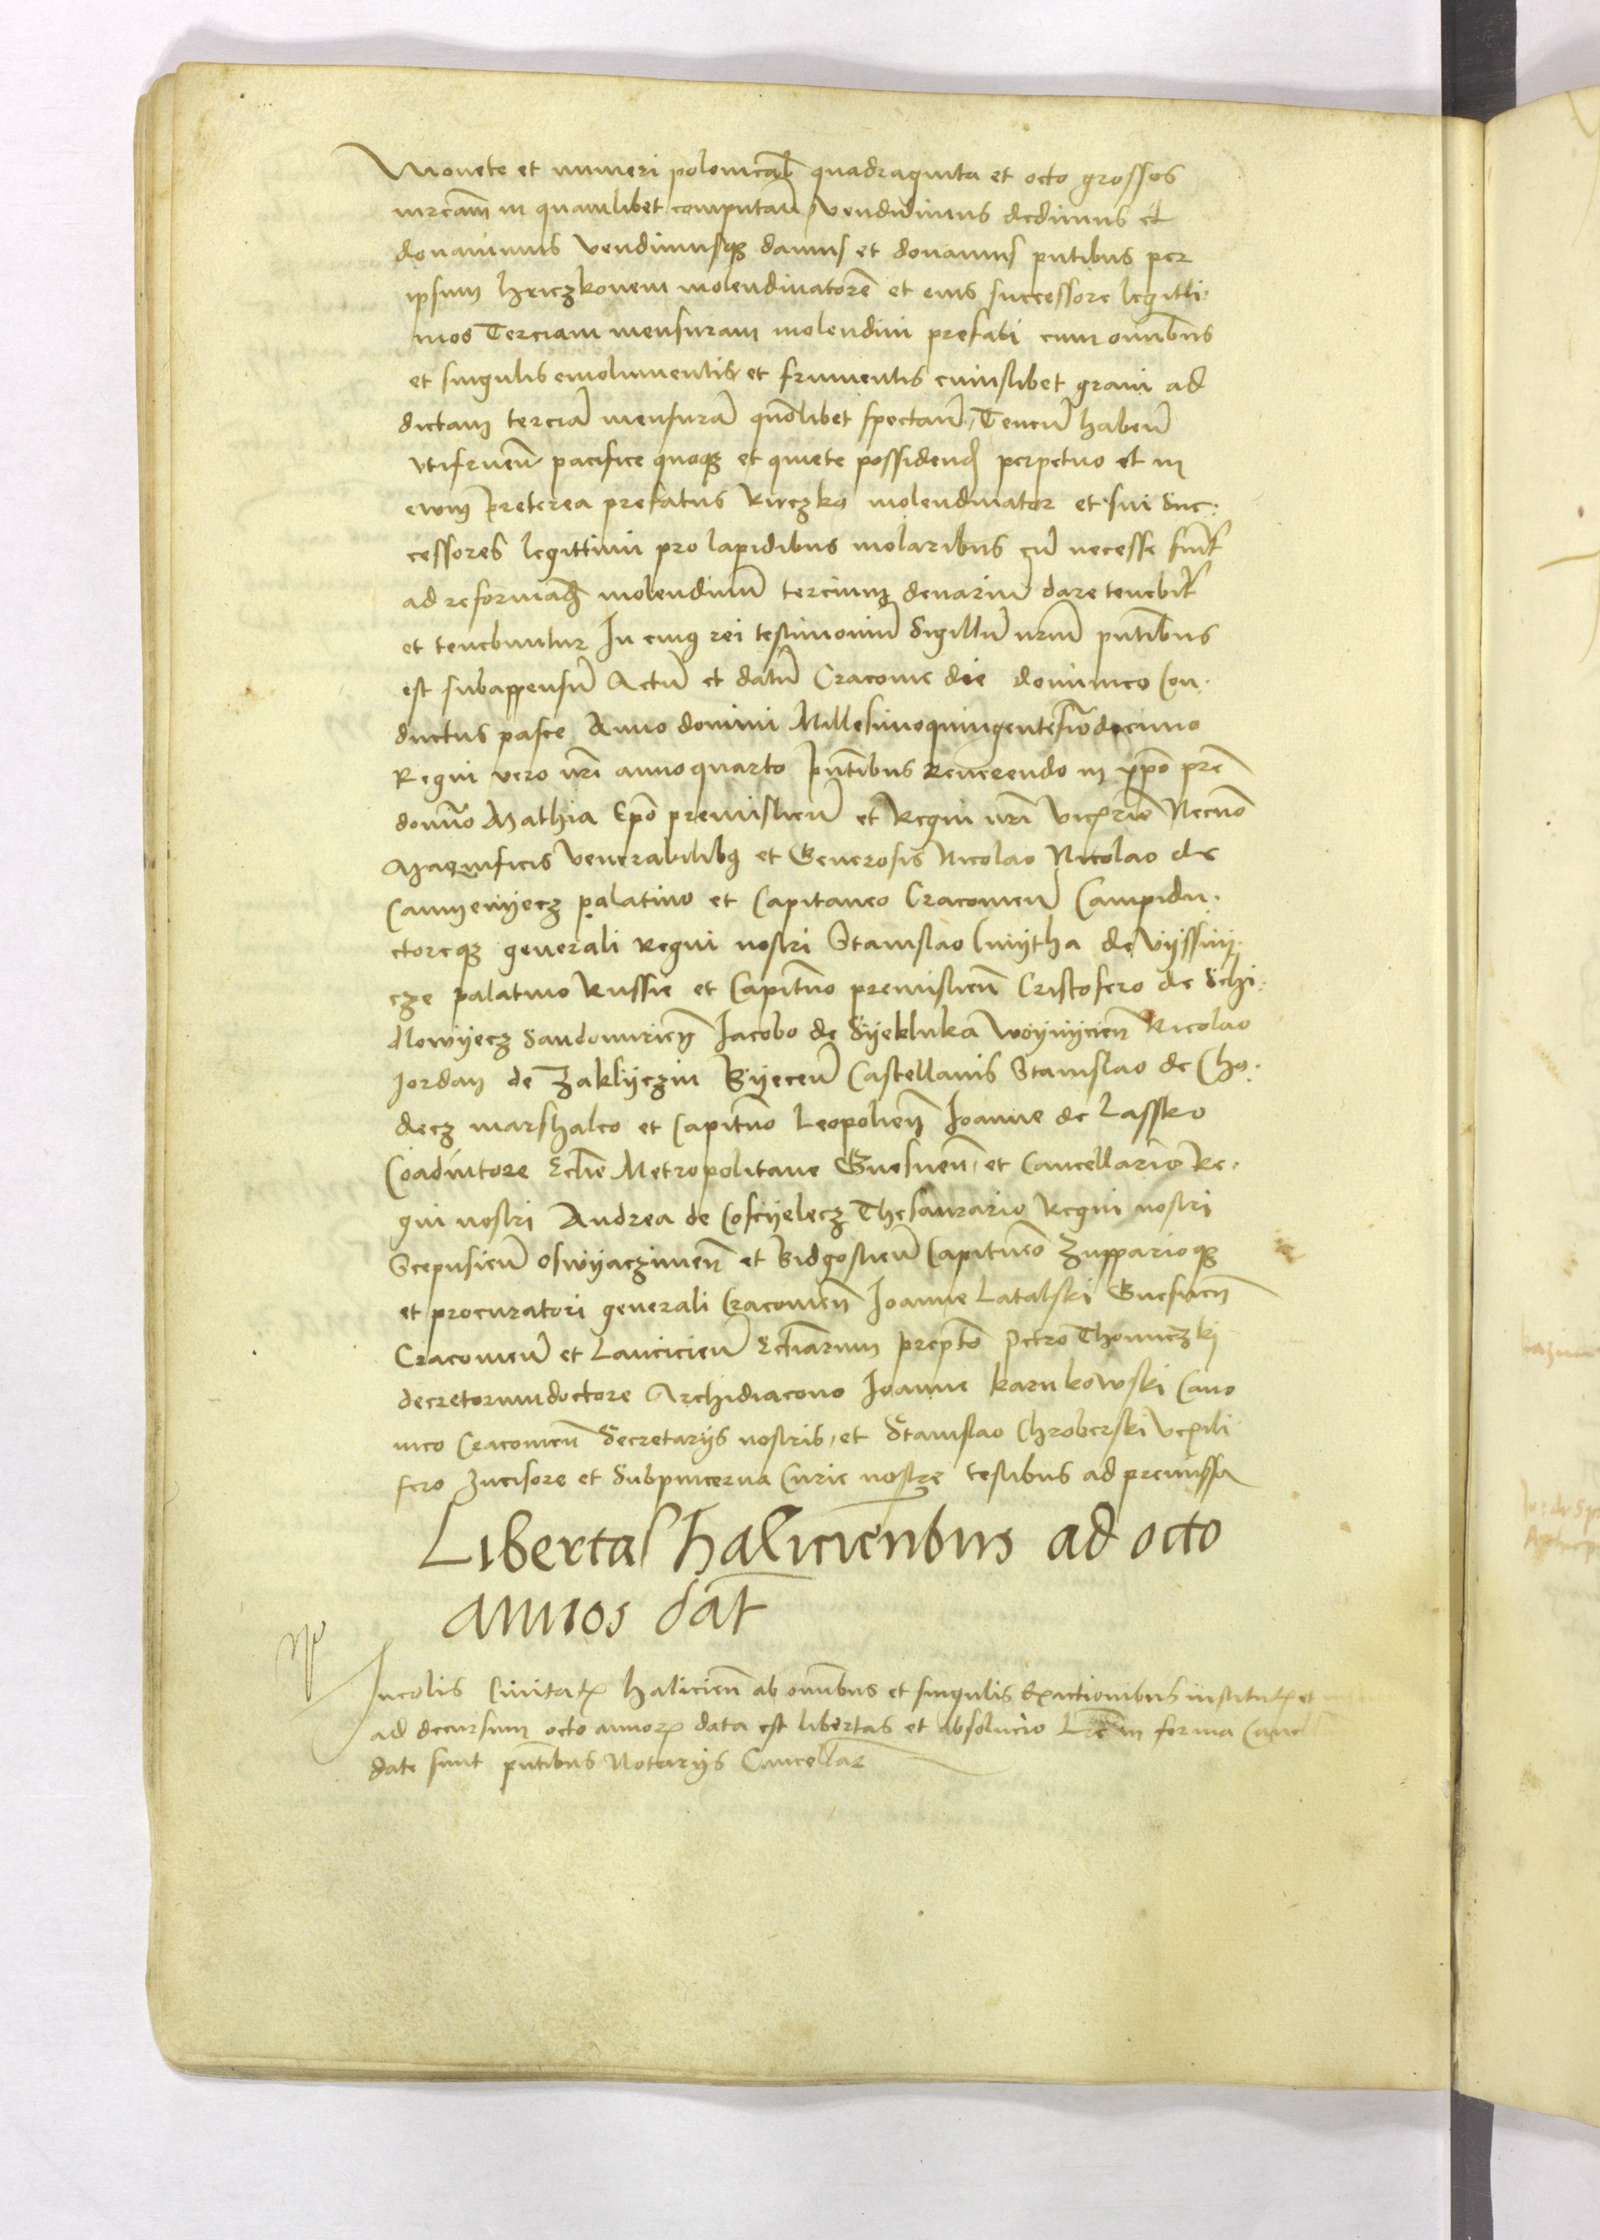 Monete et numeri polonicalis quadraginta et octo grossos
mrcam in quamlibet computan̄ vendidimus dedimus et
donavimus vendimusq̨ damus et donamus pn̄tibus per
ipsum hriczkonem molendinatorē et eius successores legitti-
mos Terciam mensuram molendini prefati cum omnibus
et singulis emolumentis et frumentis cuiuslibet grani ad
dictam terciā mensurā quōlibet spectan̄ Tenen̄ haben̄
vtifruen̄ pacifice quoq̨ et quiete possidend̄ perpetuo et in
ewm preterea prefatus Riczko molendinator et sui Suc-
cessores legittimi pro lapidibus molaribus cū necesse fuīt
ad reformād̄ molendinū tercium denariū dare tenebit̄
et tenebuntur In cuiꝯ rei testimoniū Sigillū nrm̄ pn̄tibus
est subappensū Actū et datū Cracovie die dominico Con-
ductus pasce Anno domini Millesimoquingentesīodecimo
Regni vero nr̄i anno quarto pn̄tibus Reverendo in xp̄o pr̄e
domīo Mathia Ep̄o premislien̄ et Regni nr̄i vicecancellario Necnō
Magnificis venerabilibꝯ et Generosis Nicolao Nicolao de
Camyenyecz palatino et Capitaneo Cracovien̄ Campidu-
ctoreq̨ generali Regni nostri Stanislao Cmytha de vyssny-
cze palatino Russie et Capitn̄o premislien̄ Cristofero de Schi-
dlowyecz Sandomirien̄ Iacobo de Syekluka Woynycien̄ Nicolao
Iordan de Zaklyczin Byecen̄ Castellanis Stanislao de Cho-
decz marshalco et Capitn̄o Leopolien̄ Ioanne de Lassko
Coadiutore Ecclīe Metropolitane Gnesnen̄ et Cancellario Re-
gni nostri Andrea de Cosczyelecz Thesaurario Regni nostri
Scepusien̄ Oswyaczimen̄ et Bidgostien̄ Capitn̄eo Zupparioq̨
et procuratori generali Cracovien̄ Ioanne Latalski Gnesnen̄
Cracovien̄ et Lancicien̄ Eccl̄iarum prep̄to Petro Thomiczki
decretorumdoctore Archidiacono Ioanne Karnkowski Cano
nico Cracovien̄ Secretarijs nostris, et Stanislao Chroberski vexilli
fero Incisore et Subpincerna Curie nostre testibus ad premissa
Libertas haliciēn̄bus ad octo
annos dat̄
Incolis Civitatꝭ halicien̄ ab omn̄ibus et singulis Exactionibus institutꝭ et
ad decursum octo annoꝝ data est libertas et absolucio Lrē in forma Cancel
date sunt pn̄tibus Notarijs Cancellar̄